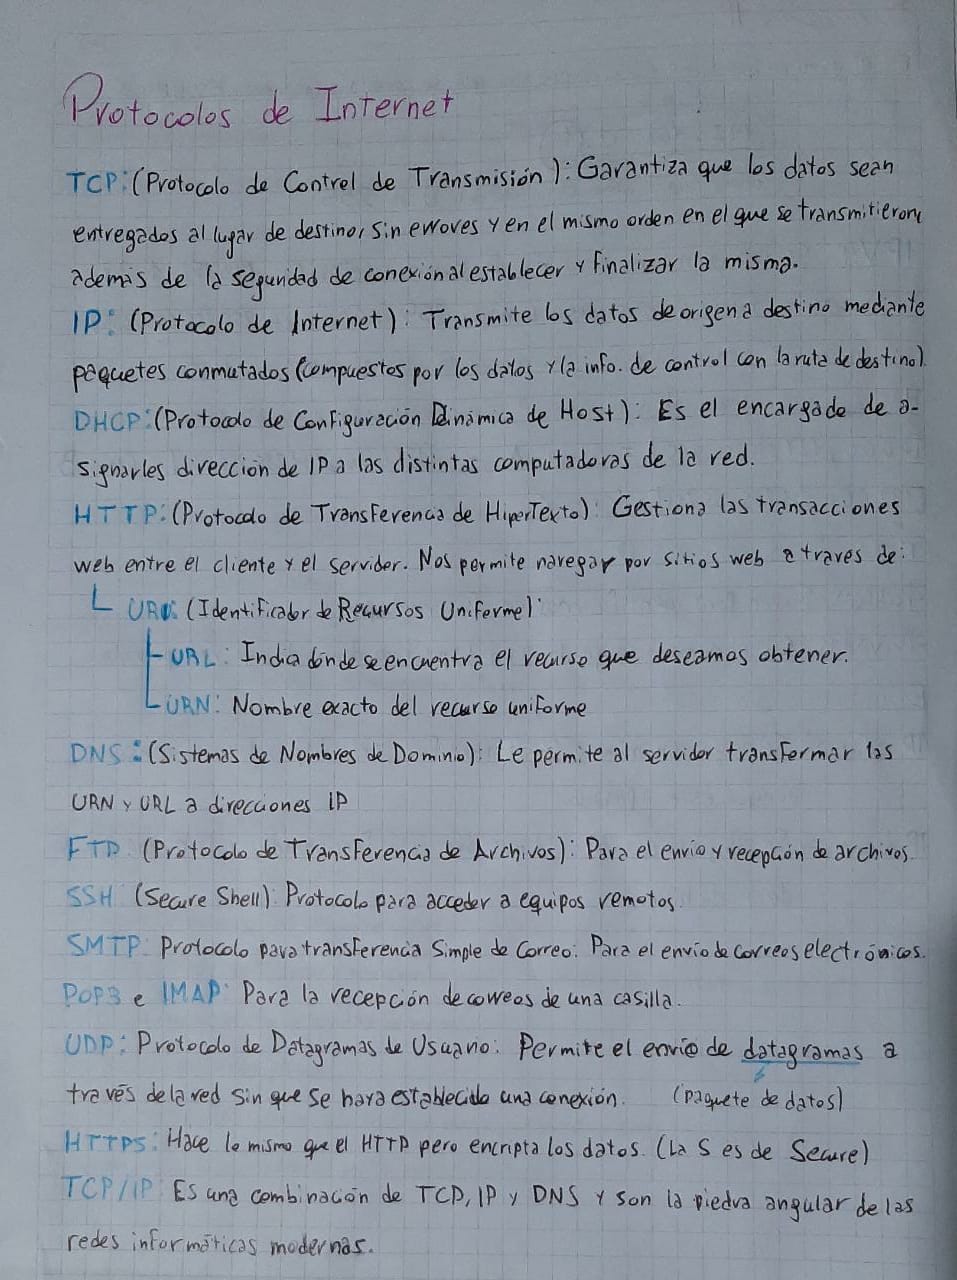 Protocolos de Internet
TCP: (Protocolo de Control de Transmisión): Garantiza que los datos sean
entregados al lugar de destino, sin errores y en el mismo orden en el que se transmitieron,
además de la seguridad de conexión al establecer y finalizar la misma.
IP: (Protocolo de Internet): Transmite los datos de origen a destino mediante
paquetes conmutados (compuestos por los datos y la info. de control con la ruta de destino).
DHCP: (Protocolo de Configuración Dinámica de Host): Es el encargado de a-
signarles dirección de IP a las distintas computadoras de la red.
HTTP: (Protocolo de Transferencia de HiperTexto): Gestiona las transacciones
web entre el cliente y el servidor. Nos permite navegar por sitios web a través de:
URI: (Identificador de Recursos Uniforme):
URL: Indica dónde se encuentra el recurso que deseamos obtener.
URN: Nombre exacto del recurso uniforme
DNS: (Sistemas de Nombres de Dominio): Le permite al servidor transformar las
URN y URL a direcciones IP
FTP: (Protocolo de Transferencia de Archivos): Para el envío y recepción de archivos.
SSH (Secure Shell): Protocolo para acceder a equipos remotos
SMTP: Protocolo para transferencia Simple de Correo: Para el envío de correos electrónicos.
POP3 e IMAP: Para la recepción de correos de una casilla.
UDP: Protocolo de Datagramas de Usuario: Permite el envío de datagramas a
través de la red sin que se haya establecido una conexión. (paquete de datos)
HTTPS: Hace lo mismo que el HTTP pero encripta los datos. (La S es de Secure)
TCP/IP: Es una combinación de TCP, IP y DNS y son la piedra angular de las
redes informáticas modernas.